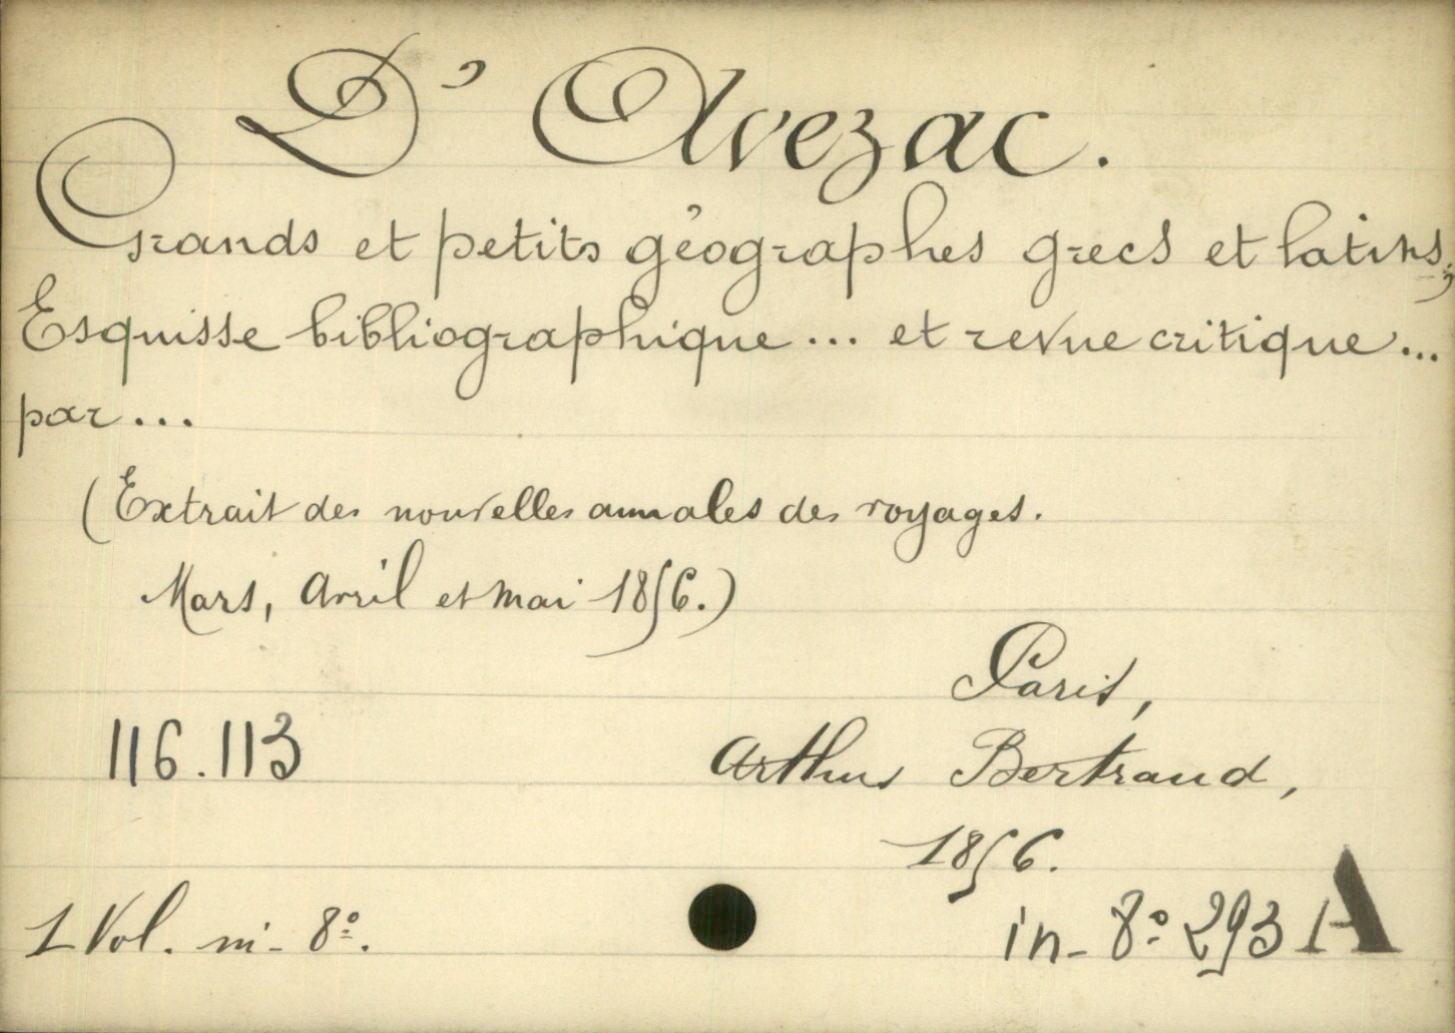 D'Avezac.
Grands et petits géographes grecs et latins;
Esquisse bibliographique... et revue critique...
par...
(Extrait des nouvelles annales des voyages.
Mars, Avril et Mai 1856.)
Paris,
116.113
Arthus Bertrand,
1856.
1 Vol. in-8º.
in-8º 293 A